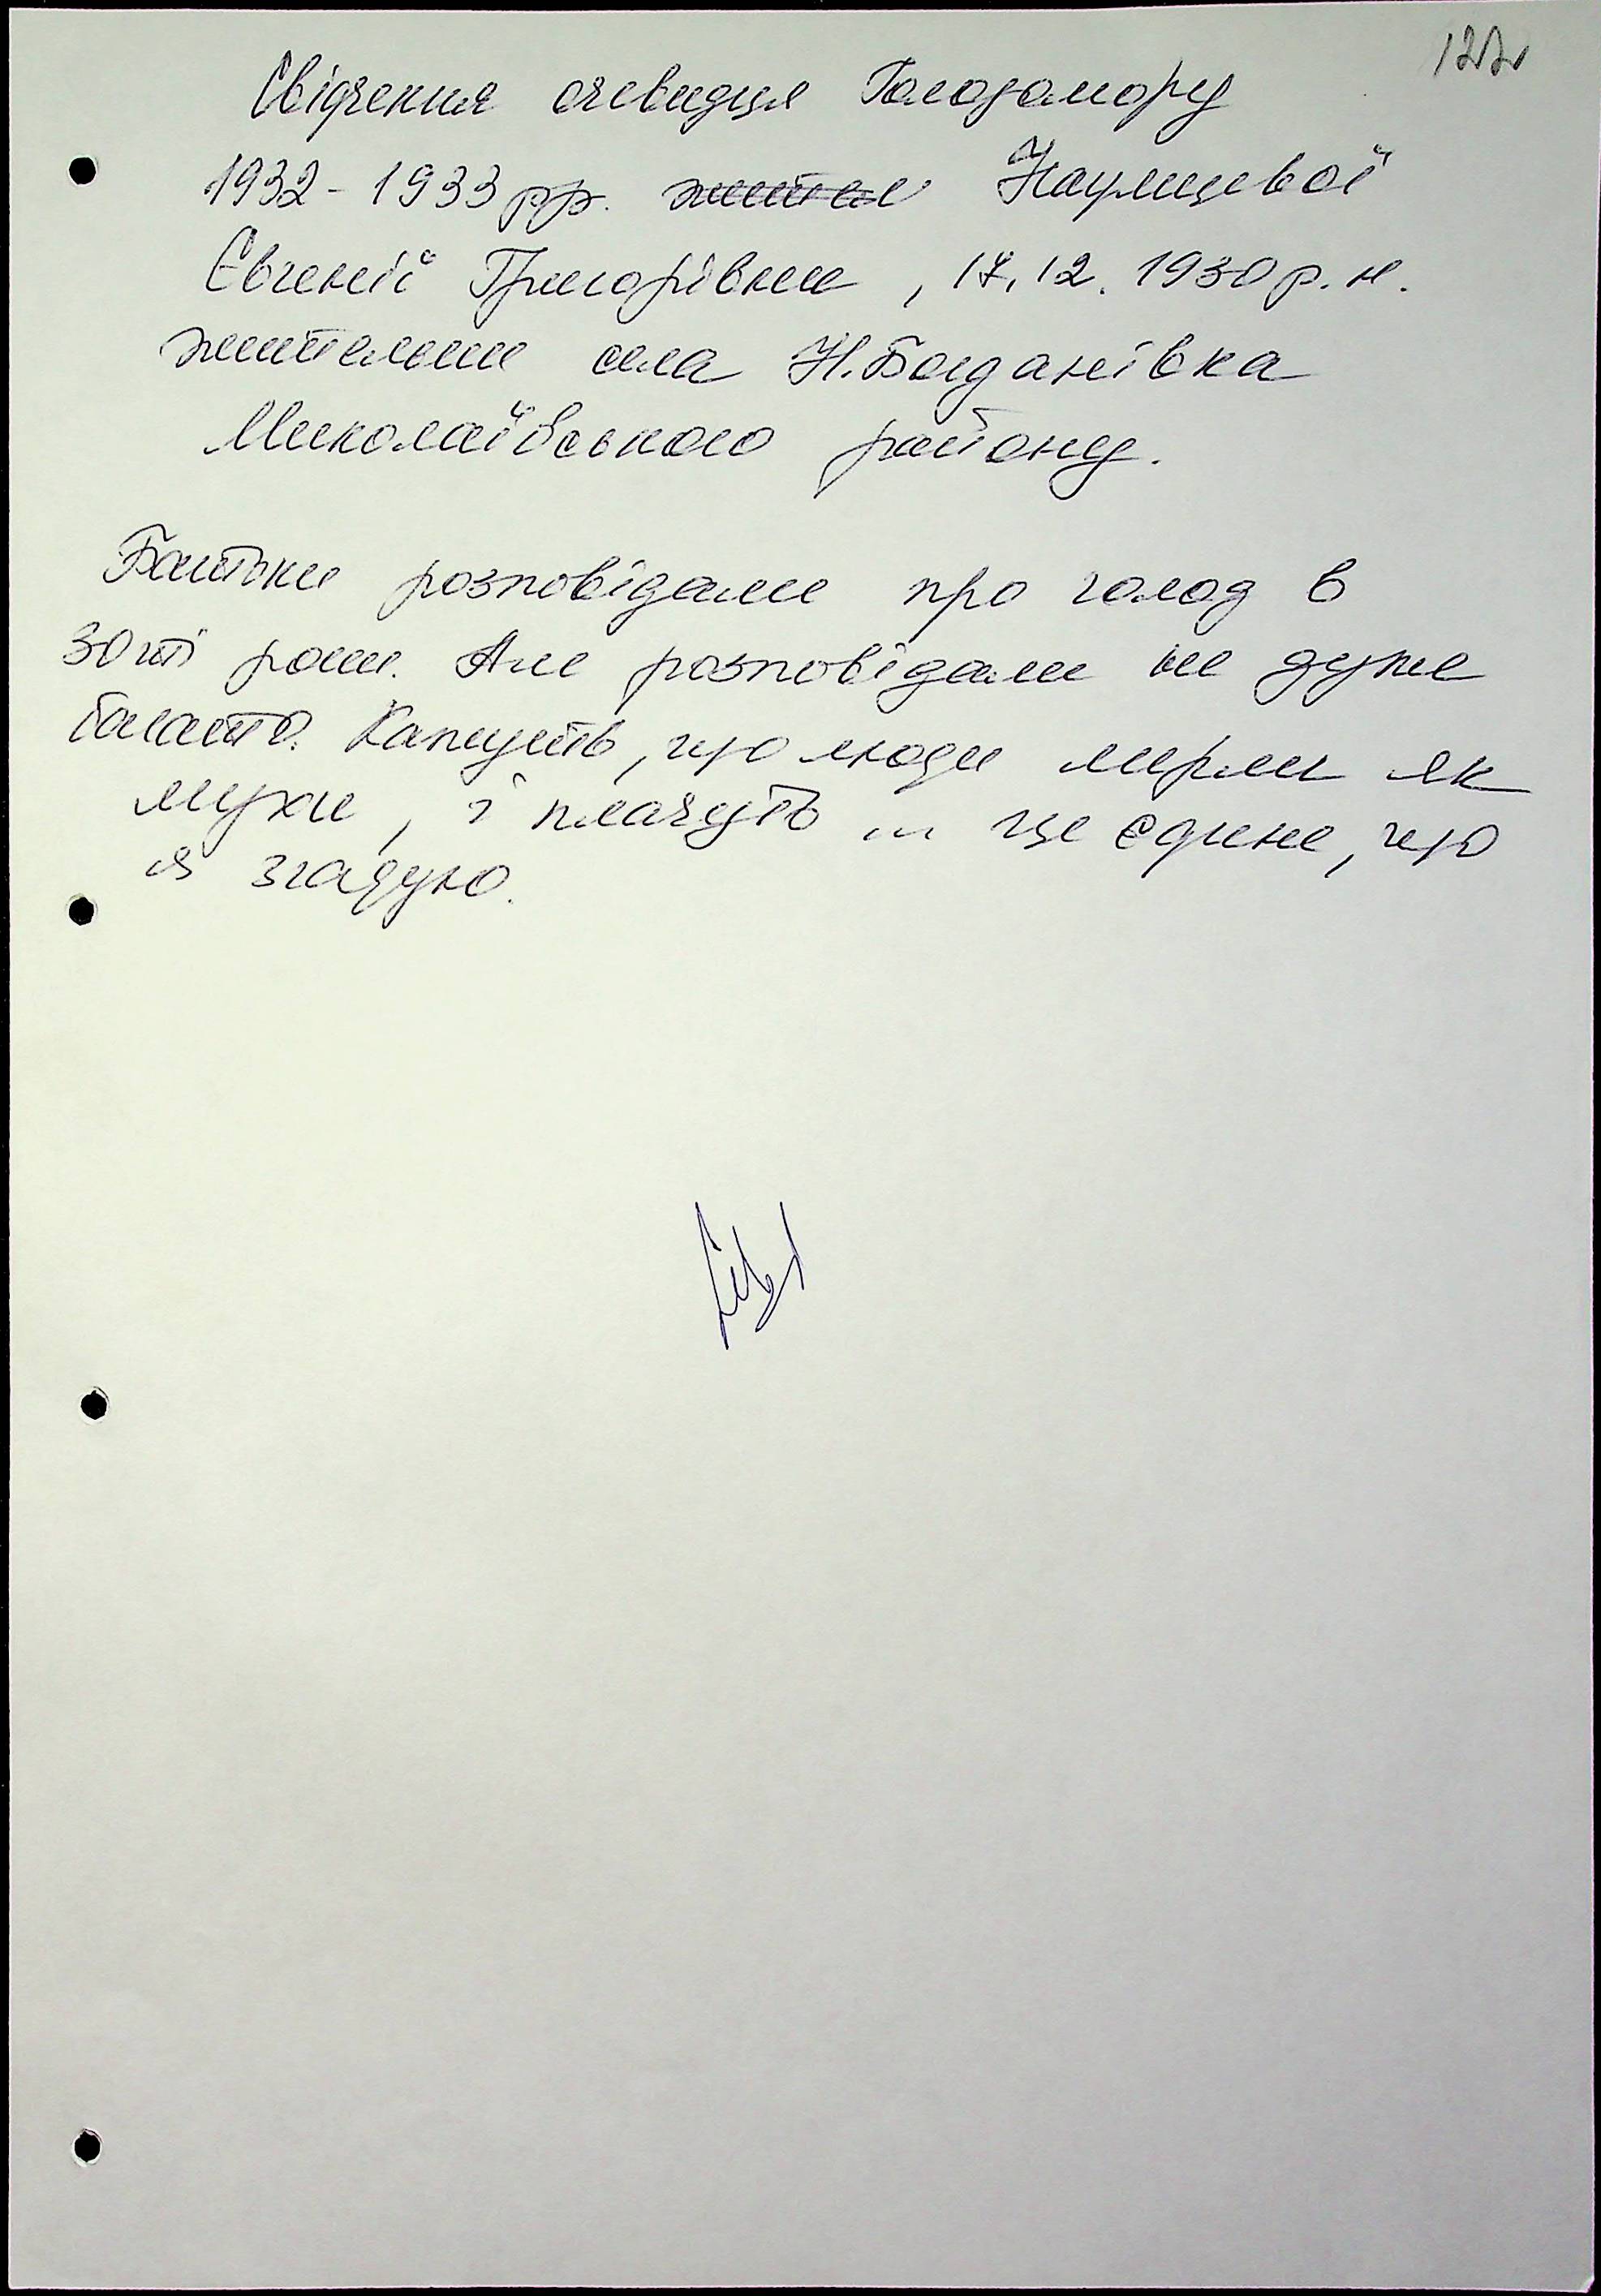 Свідчення очевидця Голодомору
1932-1933 рр. Наумцевої
Євгенії Григорівни, 17.12.1930 р.н.
жительки села Н.Богданівка
Миколаївського району.
Батьки розповідали про голод в
30ті роки. Але розповідали не дуже
багато. Кажуть, що люди мерли як
мухи, і плачуть ... це єдине, що
я згадую.